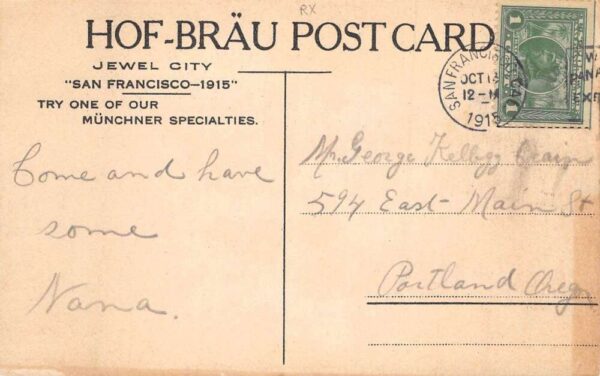 RX
HOF-BRÄU POST CARD
JEWEL CITY
"SAN FRANCISCO-1915"
TRY ONE OF OUR
MÜNCHNER SPECIALTIES.
SAN FRANCI
OCT 1
12-M
1915
1
1
Come and have
some
Nana.
Mr. George Kellogg
594 East Main St
Portland Oregon